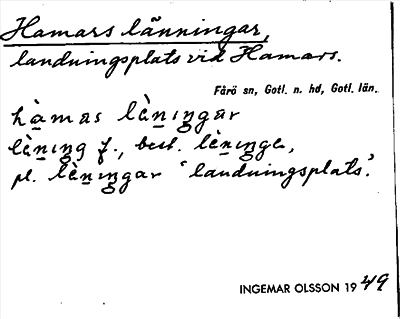 Hamars länningar,
landningsplats vid Hamars.
Fårö sn, Gotl. n. hd, Gotl. län.
hàmas lèningar
lèning f., best. lèninge,
pl. lèningar 'landningsplats'.
INGEMAR OLSSON 1949